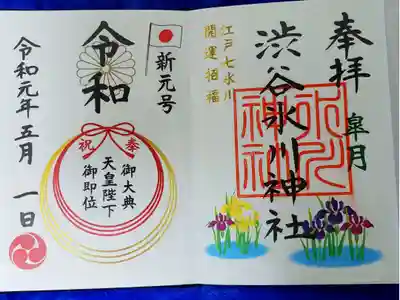 奉拝
皐月
渋谷氷川神社
江戸七氷川
開運招福
氷川神社
新元号
令和
奉祝
御大典
天皇陛下
御即位
令和元年五月一日